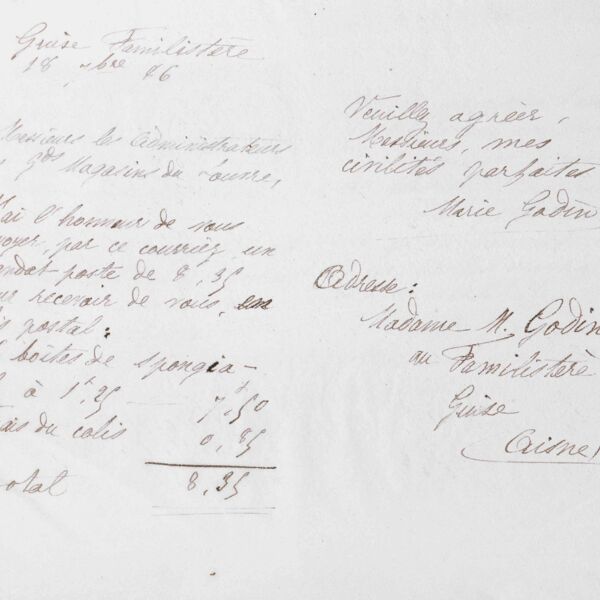 Guise Familistère
18 bre 86
Messieurs les Administrateurs
gds Magasins du Louvre,
ai l'honneur de vous
voyer, par ce courrier, un
andat-poste de 8,35
ur recevoir de vous, en
is postal:
boîtes de spongia-
à 1f,25 7f,50
ais du colis 0,85
otal 8,35
Veuillez agréer,
Messieurs, mes
civilités parfaites
Marie Godin
Adresse:
Madame M. Godin
au Familistère
Guise
(Aisne)